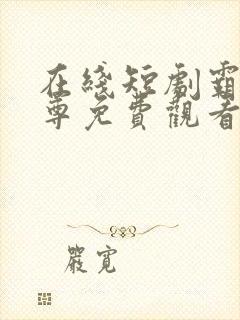 在綫短劇霸
尊免費觀看
嚴寬